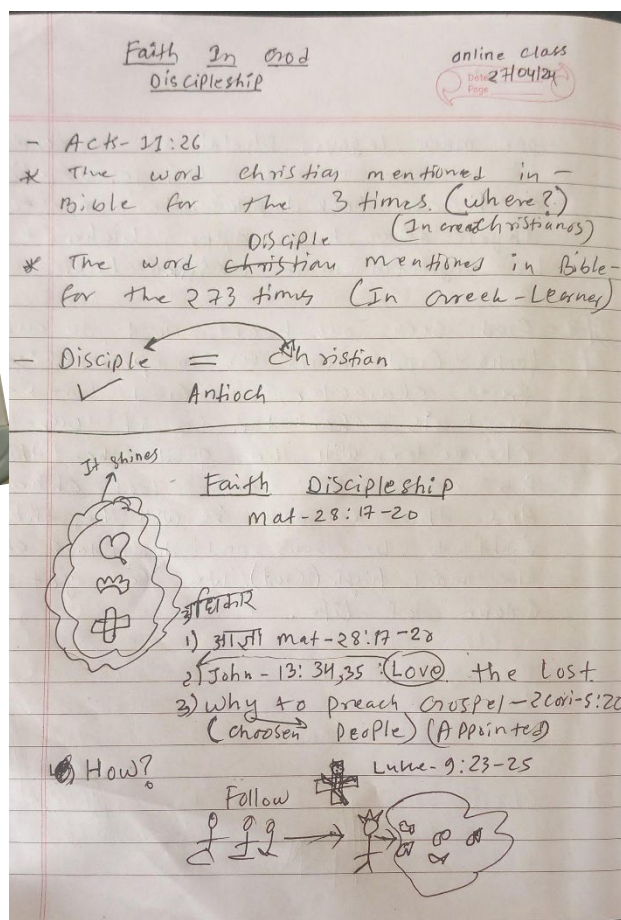 Faith In God
Discipleship
online class
Date 27/04/24
Page
- Act- 11:26
* The word christian mentioned in -
Bible for the 3 times. (where?)
(In greek christianos)
Disciple
* The word christian mentiones in Bible-
for the 273 times (In Greek-Learner)
- Disciple = Christian
✓ Antioch
It shines
Faith Discipleship
mat-28:17-20
अधिकार
1) आज्ञा mat-28:17-20
2) John - 13: 34,35 : Love the Lost
3) Why to preach Gospel - 2 cori-5:20
(choosen People) (Appointed)
4) How?
Luke- 9:23-25
Follow